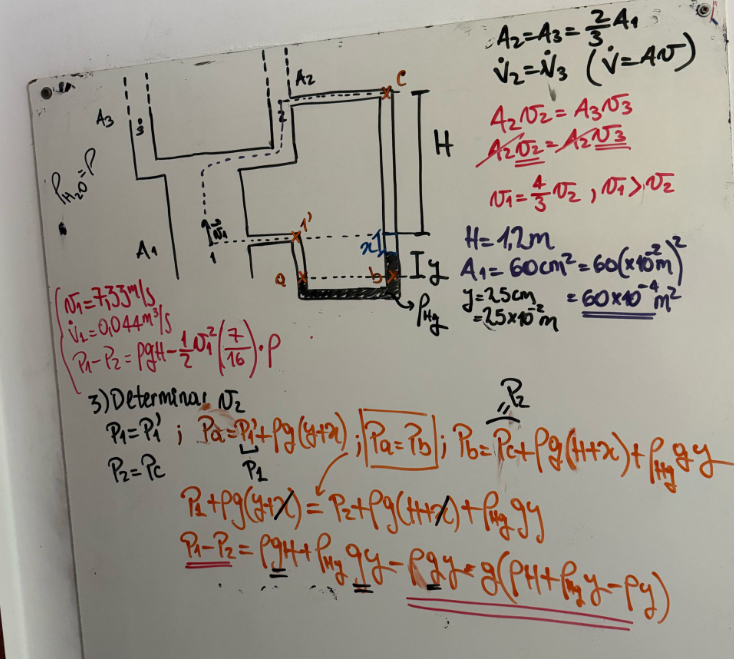 A₂ = A₃ = 2/3 A₁
V̇₂ = V̇₃ (V̇ = Av)
A₂v₂ = A₃v₃
A₂v₂ = A₂v₃
v₁ = 4/3 v₂ , v₁ > v₂
H = 1,2m
A₁ = 60cm² = 60(x10⁻²m)²
= 60x10⁻⁴ m²
y = 25cm
= 25x10⁻² m
A₃
3
A₂
2
C
H
ρH₂O = ρ
A₁
v₁
1
1'
x
y
a
b
ρHg
v₁ = 7,33 m/s
V̇₂ = 0,044 m³/s
P₁ - P₂ = ρgH - 1/2 v₁² (7/16) · ρ
3) Determinar v₂
P₁ = P₁' ; Pa = P₁' + ρg(y+x) ; Pa = Pb ; Pb = Pc + ρg(H+x) + ρHg gy
P₁
= P₂
P₂ = Pc
P₁ + ρg(y+x) = P₂ + ρg(H+x) + ρHg gy
P₁ - P₂ = ρgH + ρHg gy - ρgy = g(ρH + ρHg y - ρy)